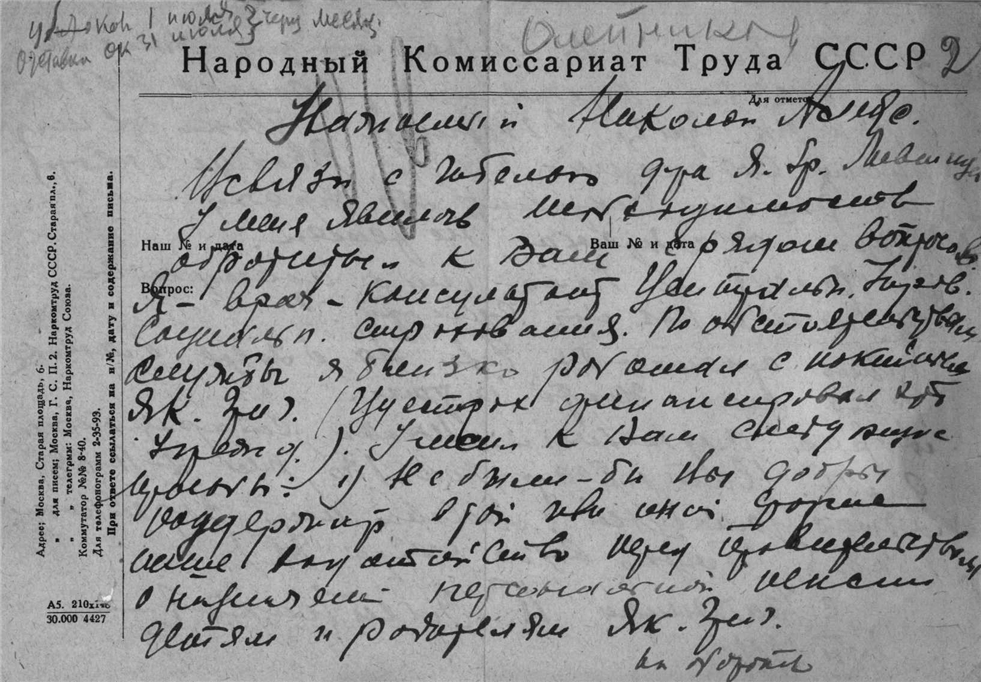 1 июля } через месяц
Отставки ок 31 июля
Народный Комиссариат Труда СССР 2
Для отметок
Николай
В связи с гибелью д-ра Я. Гр.
У меня явилась необходимость
Наш № и дата
Ваш № и дата
обратиться к Вам с рядом вопросов.
Вопрос:
Я - врач - консультант Центральн.
Социальн. страхования. По обстоятельствам
службы я близко работал с покойным
Як. Гр. (Цустрах финансировал
). У меня к Вам следующие
просьбы: 1) Не были-бы Вы добры
поддержать в той или иной форме
наше ходатайство перед правительством
о назначении персональной пенсии
детям и родителям Як. Гр.
на обороте
Адрес: Москва, Старая площадь, 6.
" для писем: Москва, Г. С. П. 2. Наркомтруд СССР. Старая пл., 6.
" " телеграмм: Москва, Наркомтруд Союза.
Коммутатор №№ 8-40.
Для телефонограмм 2-35-93.
При ответе ссылаться на н/№, дату и содержание письма.
А5. 210х148
30.000 4427